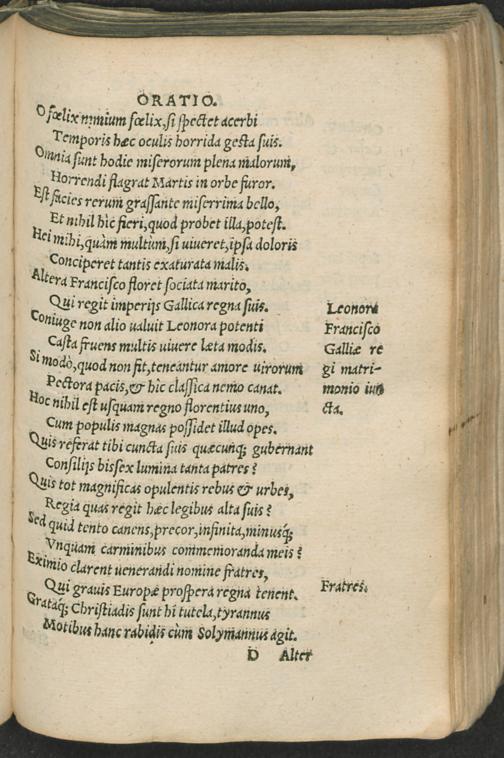 ORATIO.
O fœlix nimium fœlix, si spectet acerbi
Temporis hæc oculis horrida gesta suis.
Omnia sunt hodie miserorum plena malorum,
Horrendi flagrat Martis in orbe furor.
Est facies rerum grassante miserrima bello,
Et nihil hîc fieri, quod probet illa, potest.
Hei mihi, quàm multum, si viueret, ipsa doloris
Conciperet tantis exaturata malis.
Altera Francisco floret sociata marito,
Qui regit imperijs Gallica regna suis.
Coniuge non alio valuit Leonora potenti
Casta fruens multis viuere læta modis.
Si modò, quod non fit, teneantur amore virorum
Pectora pacis, & hîc classica nemo canat.
Hoc nihil est vsquam regno florentius vno,
Cum populis magnas possidet illud opes.
Quis referat tibi cuncta suis quæcunq; gubernant
Consilijs bissex lumina tanta patres?
Quis tot magnificas opulentis rebus & vrbes,
Regia quas regit hæc legibus alta suis?
Sed quid tento canens, precor, infinita, minusq́;
Vnquam carminibus commemoranda meis?
Eximio clarent venerandi nomine fratres,
Qui grauis Europæ prospera regna tenent.
Grataq́; Christiadis sunt hi tutela, tyrannus
Motibus hanc rabidis cùm Solymannus agit.
Leonora
Francisco
Galliæ re
gi matri-
monio iun
cta.
Fratres.
D Alter